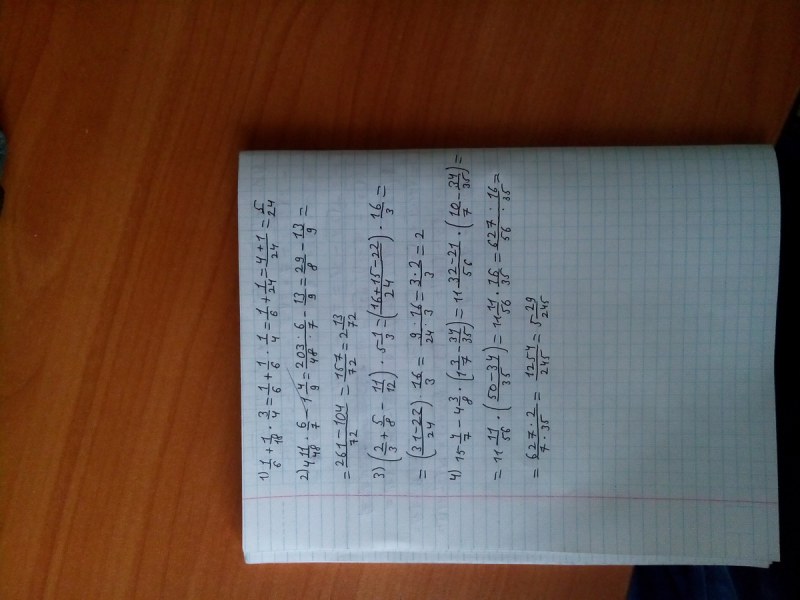 1) 1/6 + 1/18 · 3/4 = 1/6 + 1/6 · 1/4 = 1/6 + 1/24 = 4+1/24 = 5/24
2) 4 11/48 · 6/7 - 1 4/9 = 203·6/48·7 - 13/9 = 29/8 - 13/9 =
= 261-104/72 = 157/72 = 2 13/72
3) (2/3 + 5/8 - 11/12) · 5 1/3 = (16+15-22/24) · 16/3 =
= (31-22/24) · 16/3 = 9·16/24·3 = 3·2/3 = 2
4) 15 4/7 - 4 3/8 · (1 3/7 - 34/35) = 11 32-21/56 · (10/7 - 34/35) =
= 11 11/56 · (50-34/35) = 11 11/56 · 16/35 = 627·16/56·35 =
= 627·2/7·35 = 1254/245 = 5 29/245